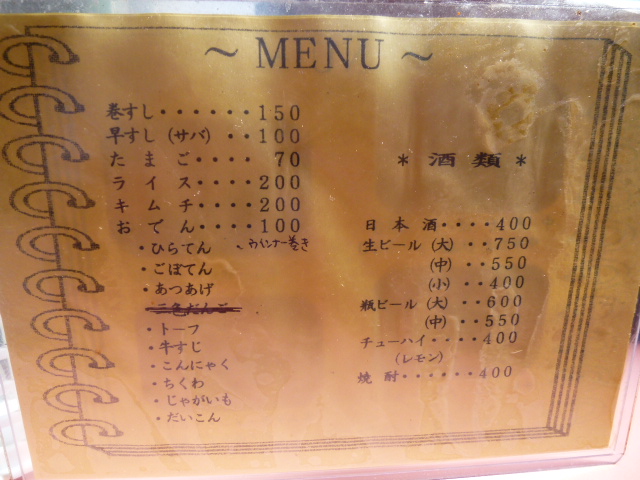 ～ MENU ～
巻すし・・・・・・150
早すし (サバ) ・・100
たまご・・・・ 70
ライス・・・・200
キムチ・・・・200
おでん・・・・100
・ひらてん
・ウインナー巻き
・ごぼてん
・あつあげ
・トーフ
・牛すじ
・こんにゃく
・ちくわ
・じゃがいも
・だいこん
* 酒類 *
日本酒・・・・400
生ビール (大) ・・750
(中) ・・550
(小) ・・400
瓶ビール (大) ・・600
(中) ・・550
チューハイ・・・・400
(レモン)
焼酎・・・・・・400